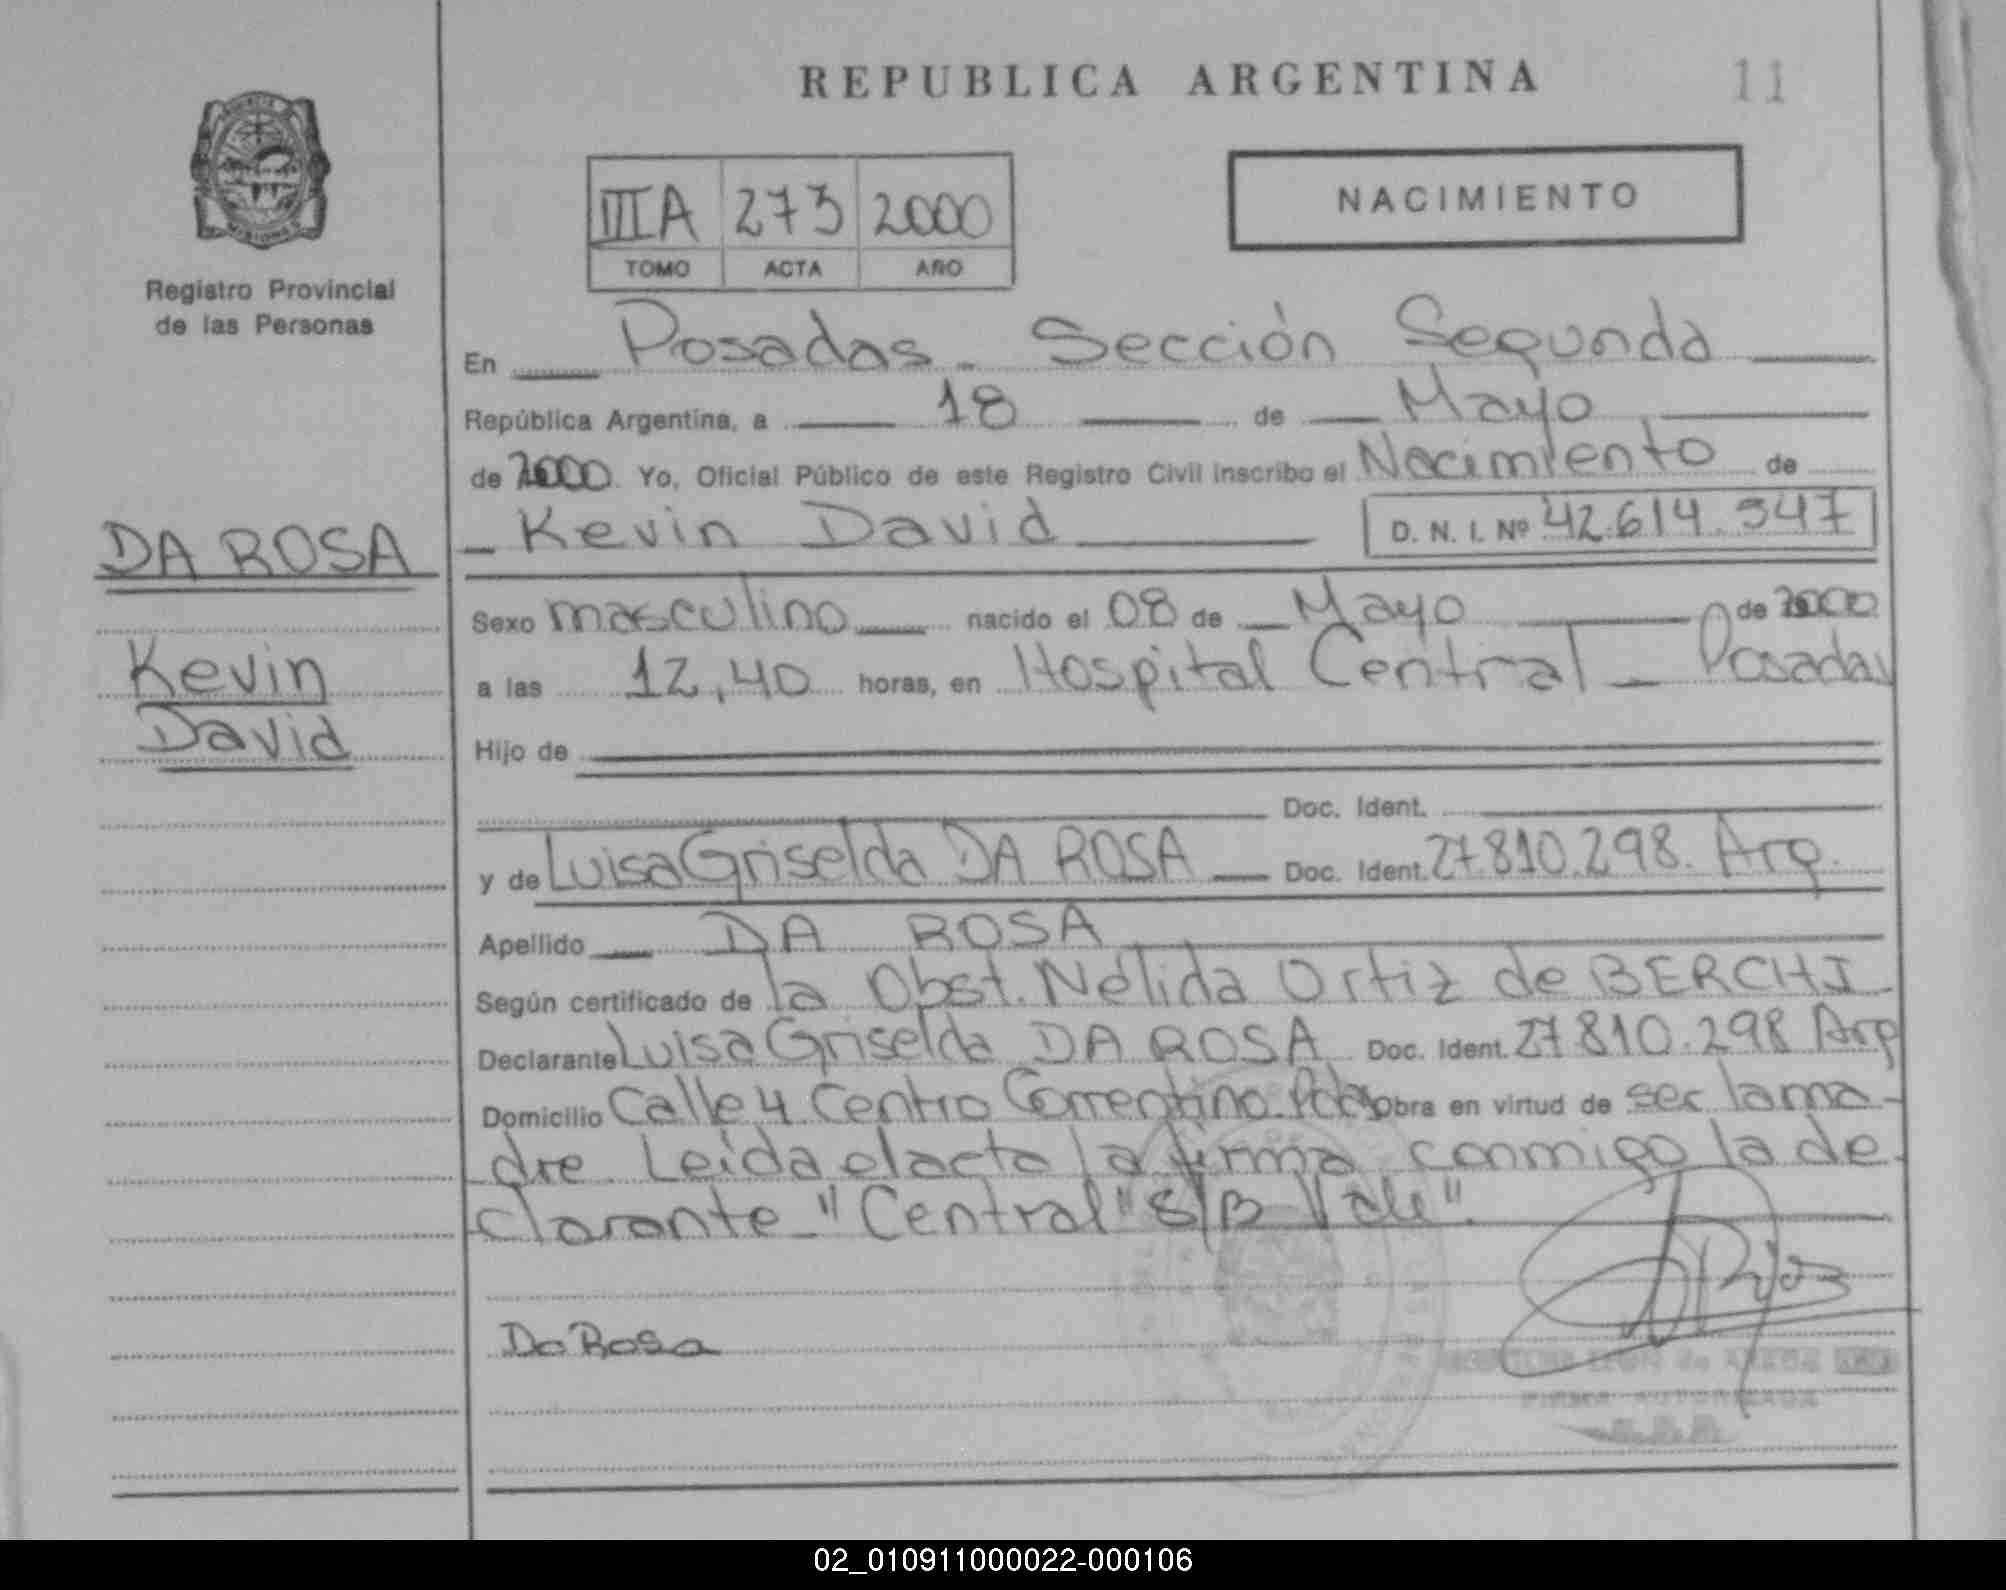 REPUBLICA ARGENTINA
11
MISIONES
Registro Provincial
de las Personas
IIIA 273 2000
TOMO ACTA AÑO
NACIMIENTO
En Posadas - Sección Segunda
República Argentina, a 18 de Mayo
de 2000. Yo, Oficial Público de este Registro Civil inscribo el Nacimiento de
Kevin David D. N. I. Nº 42.614.547
DA ROSA
Kevin
David
Sexo masculino nacido el 08 de Mayo de 2000
a las 12,40 horas, en Hospital Central - Posadas
Hijo de
Doc. Ident.
y de Luisa Griselda DA ROSA Doc. Ident. 27.810.298. Arg.
Apellido DA ROSA
Según certificado de la Obst. Nélida Ortiz de BERCHI
Declarante Luisa Griselda DA ROSA Doc. Ident. 27.810.298 Arg
Domicilio Calle 4 Centro Correntino Pdas obra en virtud de ser la ma-
dre. Leída el acta la firma conmigo la de
clarante - "Central" S/B Vale".
Da Rosa
FIRMA AUTORIZADA
02_010911000022-000106